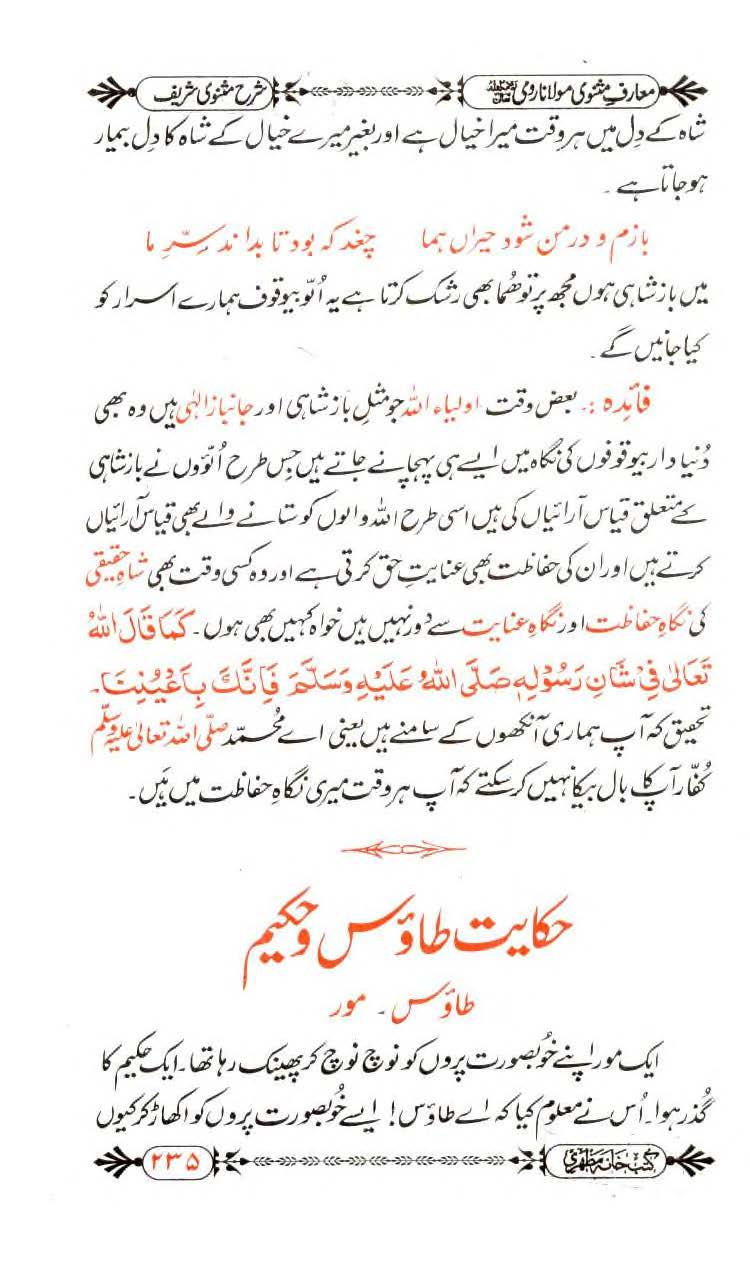 معارفِ مثنوی مولانا رومی
شرح مثنوی شریف
شاہ کے دِل میں ہر وقت میرا خیال ہے اور بغیر میرے خیال کے شاہ کا دِل بیمار
ہوجاتا ہے ۔
بازم و در من شود حیراں ہما چغد کہ بود تا بداند سِرِّ ما
میں بازِ شاہی ہوں مجھ پر تو ھُما بھی رشک کرتا ہے یہ اُلّو بیوقوف ہمارے اسرار کو
کیا جانیں گے ۔
فائدہ :۔ بعض وقت اولیاء اللہ جو مثلِ بازِ شاہی اور جانبازِ الٰہی ہیں وہ بھی
دُنیا دار بیوقوفوں کی نگاہ میں ایسے ہی پہچانے جاتے ہیں جِس طرح اُلّوؤں نے بازِ شاہی
کے متعلق قیاس آرائیاں کی ہیں اسی طرح اللہ والوں کو ستانے والے بھی قیاس آرائیاں
کرتے ہیں اور ان کی حفاظت بھی عنایتِ حق کرتی ہے اور وہ کسی وقت بھی شاہِ حقیقی
کی نگاہِ حفاظت اور نگاہِ عنایت سے دُور نہیں ہیں خواہ کہیں بھی ہوں ۔ كَمَا قَالَ اللّٰهُ
تَعَالٰى فِیْ شَانِ رَسُوْلِهٖ صَلَّى اللّٰهُ عَلَيْهِ وَسَلَّمَ فَاِنَّكَ بِاَعْيُنِنَا۔
تحقیق کہ آپ ہماری آنکھوں کے سامنے ہیں یعنی اے محُمّد صلّی اللہ تعالیٰ علیہ وسلّم
کُفّار آپ کا بال بیکا نہیں کرسکتے کہ آپ ہر وقت میری نگاہِ حفاظت میں ہَیں ۔
حکایت طاؤس و حکیم
طاؤس ۔ مور
ایک مور اپنے خُوبصورت پروں کو نوچ نوچ کر پھینک رہا تھا ۔ ایک حکیم کا
گُذر ہوا ۔ اُس نے معلوم کیا کہ اے طاؤس ! ایسے خُوبصورت پروں کو اکھاڑ کر کیوں
کتب خانہ مظہری
۲۳۵